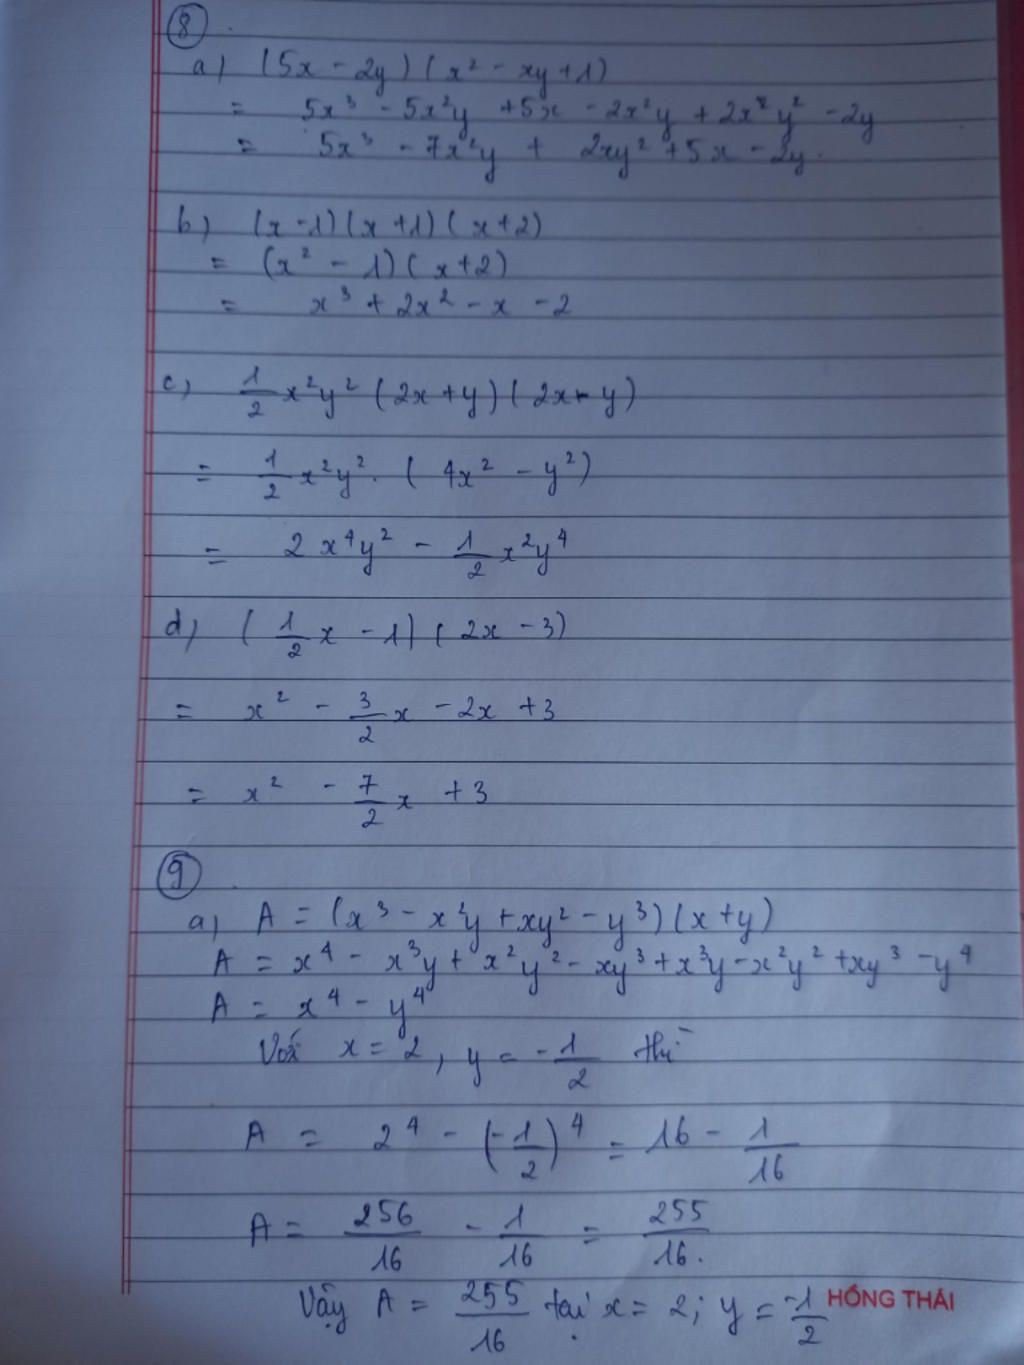 8
a) (5x - 2y) (x² - xy + 1)
= 5x³ - 5x²y + 5x - 2x²y + 2x²y² - 2y
= 5x³ - 7x²y + 2xy² + 5x - 2y.
b) (x - 1) (x + 1) (x + 2)
= (x² - 1) (x + 2)
= x³ + 2x² - x - 2
c) 1/2 x²y² (2x + y) (2x - y)
= 1/2 x²y². (4x² - y²)
= 2x⁴y² - 1/2 x²y⁴
d) (1/2 x - 1) (2x - 3)
= x² - 3/2 x - 2x + 3
= x² - 7/2 x + 3
9
a) A = (x³ - x²y + xy² - y³) (x + y)
A = x⁴ - x³y + x²y² - xy³ + x³y - x²y² + xy³ - y⁴
A = x⁴ - y⁴
Với x = 2, y = -1/2 thì
A = 2⁴ - (-1/2)⁴ = 16 - 1/16
A = 256/16 - 1/16 = 255/16.
Vậy A = 255/16 tại x = 2; y = -1/2
HỒNG THÁI